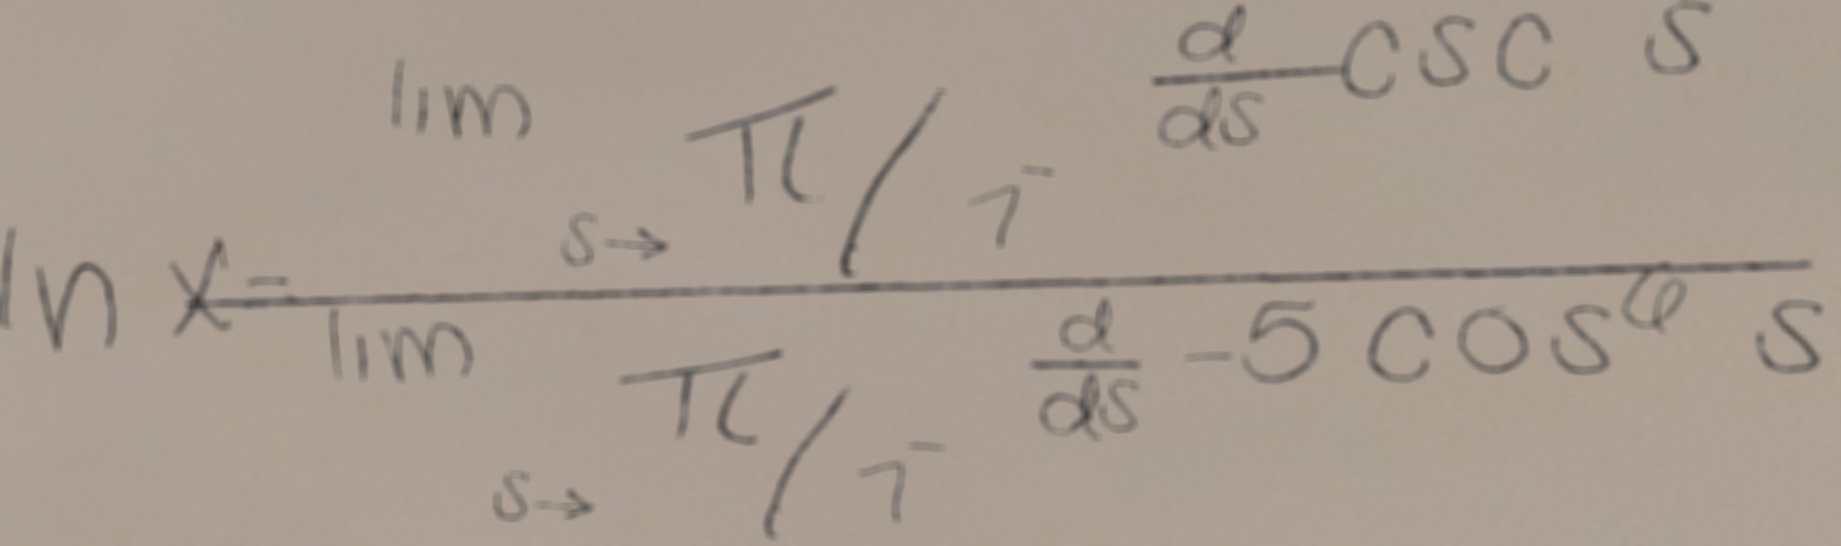 ln x = \frac{\lim_{s \to \pi/7^-} \frac{d}{ds} csc s}{\lim_{s \to \pi/7^-} \frac{d}{ds} -5 cos^6 s}